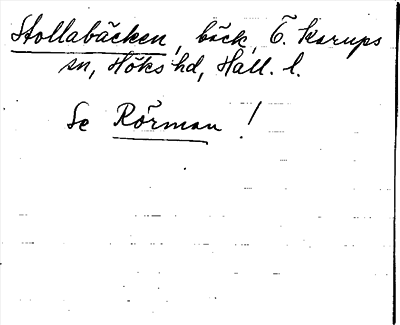 Stollabäcken, bäck, Ö. Karups
sn, Höks hd, Hall. l.
Se Rörman !